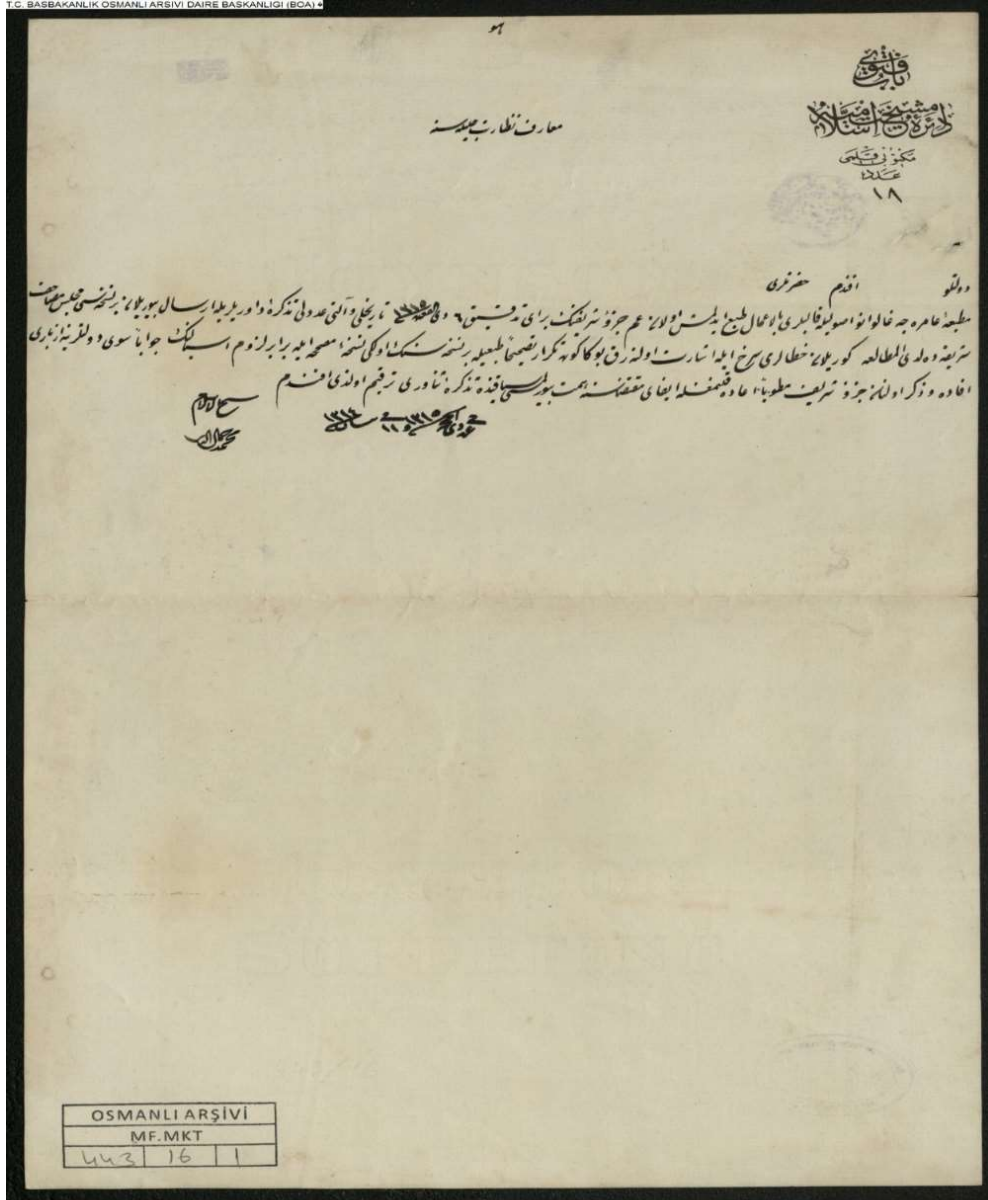 T.C. BASBAKANLIK OSMANLI ARSIVI DAIRE BASKANLIGI (BOA)
باب فتوی
دائرهٔ مشیخت اسلامیه
مکتوبی قلمی
عدد
١٨
معارف نظارت جلیله سنه
دولتلو افندم حضرتلری
مطبعهٔ عامره جه غالوانو اصولیله قالبلری بالاعمال طبع ایدلمش اولان عم جزؤ شریفنک برای تدقیق ٦ ذی القعده ١٣١٤ تاریخلی و آلتی عددلی تذکرهٔ داوریلریله ارسال بیوریلان بر نسخه سی مجلس مصاحف
شریفه ده لدی المطالعه کوریلان خطالری سرخ ایله اشارت اولنه رق بو کا کوره تکرار تصحیحاً طبعیله بر نسخه سنک اولکی نسخهٔ مصححه ایله برابر لزوم جواباً سوی دولتلرینه ازبری
افاده و ذکر اولنان جزؤ شریف مطویاً اعاده قلنمغله ایفای مقتضاسنه همت بیورلمسی سیاقنده تذکرهٔ ثناوری ترقیم اولندی افندم
شیخ الاسلام
محمد جمال الدین
OSMANLI ARŞİVİ
MF.MKT
443 16 1